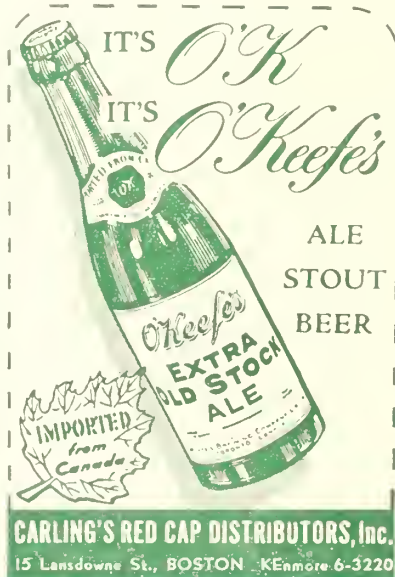 IT'S O'K
IT'S O'Keefe's
ALE
STOUT
BEER
O'Keefe's
EXTRA
OLD STOCK
ALE
IMPORTED
from
Canada
CARLING'S RED CAP DISTRIBUTORS, Inc.
15 Lansdowne St., BOSTON KEnmore 6-3220